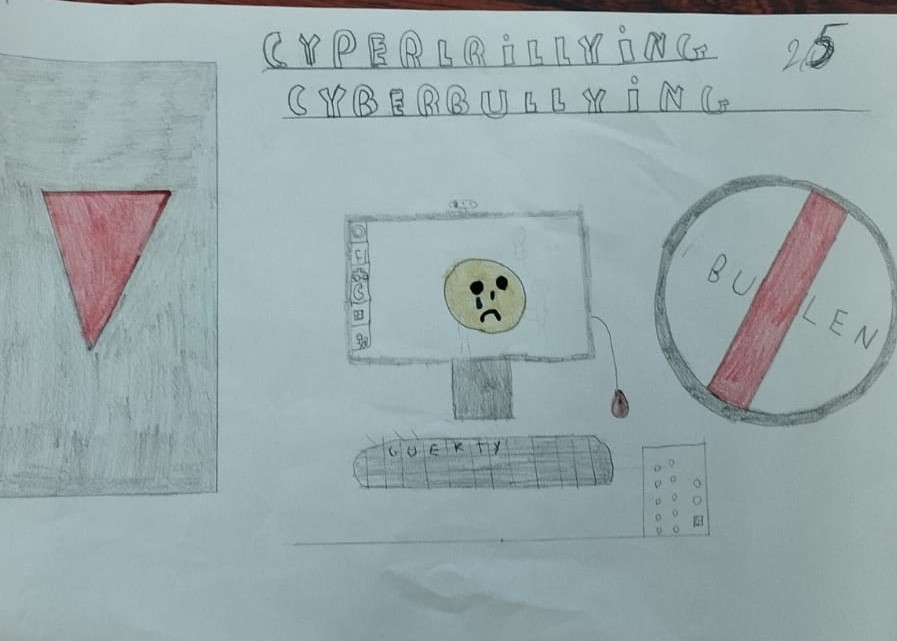 CYPERLRiLLYiNG 25
CYBERBULLYiNG
BULEN
QUERTY